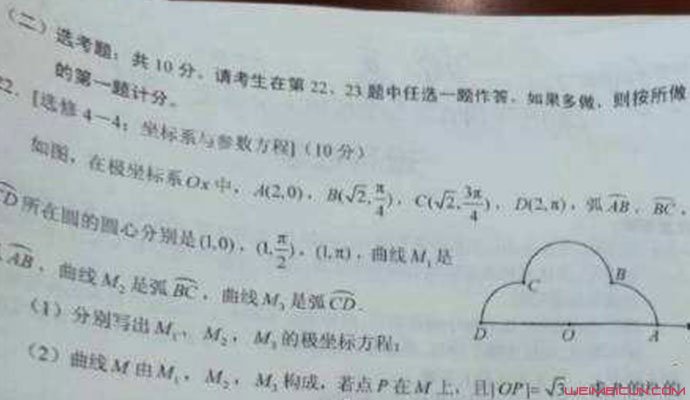 （二）选考题：共10分。请考生在第22、23题中任选一题作答。如果多做，则按所做
的第一题计分。
22. [选修4－4：坐标系与参数方程]（10分）
如图，在极坐标系Ox中，A(2,0)，B(√2,π/4)，C(√2,3π/4)，D(2,π)，弧AB，BC，
CD所在圆的圆心分别是(1,0)，(1,π/2)，(1,π)，曲线M₁是
AB，曲线M₂是弧BC，曲线M₃是弧CD.
（1）分别写出M₁，M₂，M₃的极坐标方程；
（2）曲线M由M₁，M₂，M₃构成，若点P在M上，且|OP|=√3，
C
B
D
O
A
WEIMEIBCUN.COM